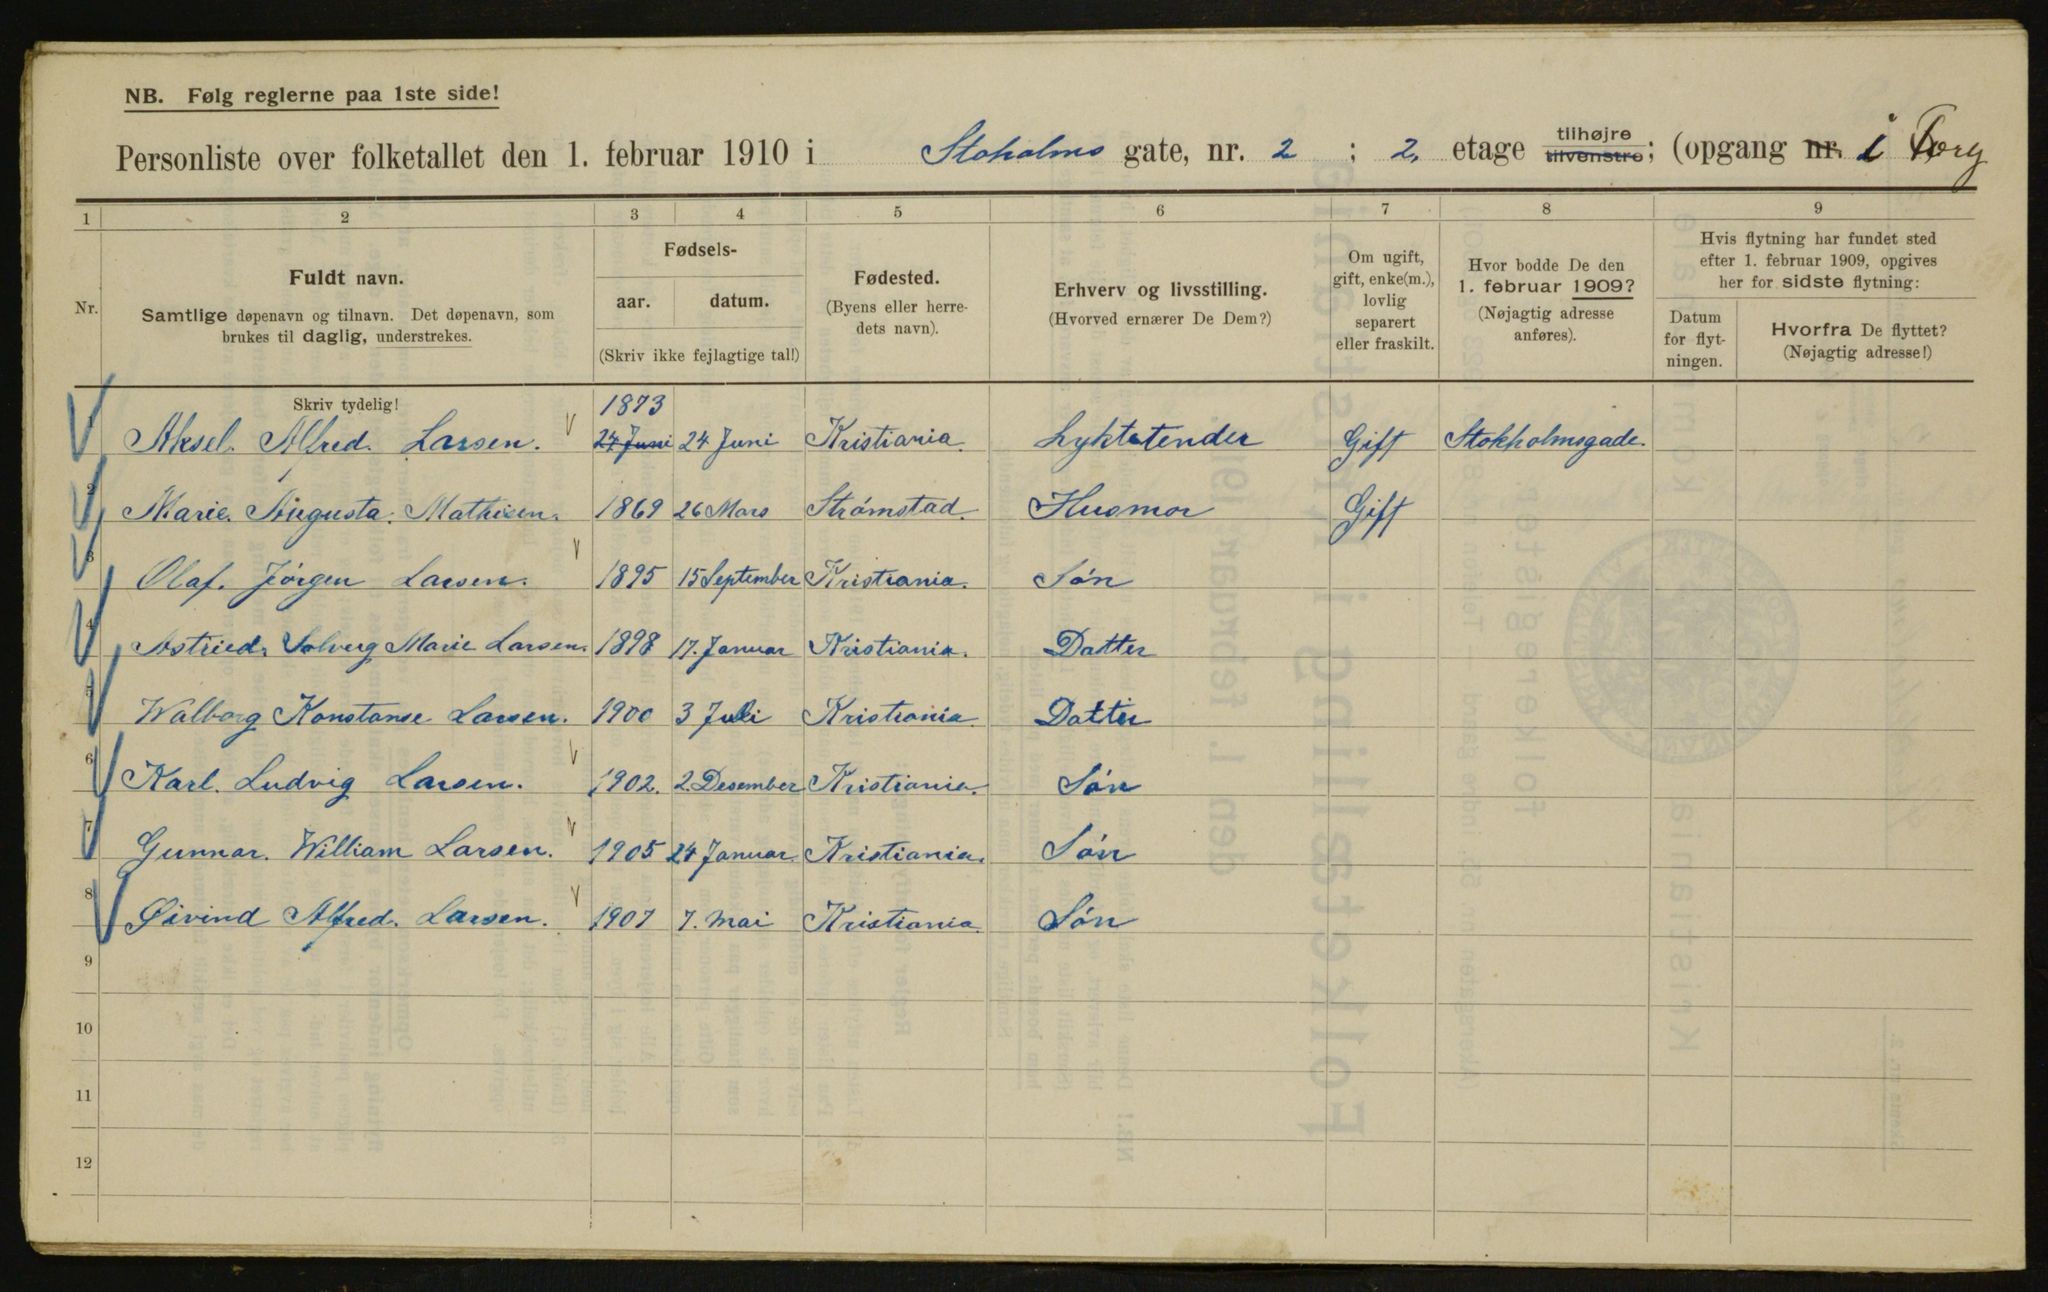 NB. Følg reglerne paa 1ste side!
Personliste over folketallet den 1. februar 1910 i Stoholms gate, nr. 2 ; 2. etage tilhøjre tilvenstre; (opgang nr. i Torg
1 2 3 4 5 6 7 8 9
Nr.
Fuldt navn.
Samtlige døpenavn og tilnavn. Det døpenavn, som
brukes til daglig, understrekes.
Fødsels-
aar. datum.
(Skriv ikke fejlagtige tal!)
Fødested.
(Byens eller herre-
dets navn).
Erhverv og livsstilling.
(Hvorved ernærer De Dem?)
Om ugift,
gift, enke(m.),
lovlig
separert
eller fraskilt.
Hvor bodde De den
1. februar 1909?
(Nøjagtig adresse
anføres).
Hvis flytning har fundet sted
efter 1. februar 1909, opgives
her for sidste flytning:
Datum
for flyt-
ningen.
Hvorfra De flyttet?
(Nøjagtig adresse!)
Skriv tydelig! 1873
1 Aksel. Alfred. Larsen. 24 Juni 24 Juni Kristiania. Lyktetender Gift Stokholmsgade.
2 Marie. Augusta. Mathisen. 1869 26 Mars Strømstad. Husmor Gift
3 Olaf. Jørgen Larsen. 1895 15 September Kristiania. Søn
4 Astried. Solveig Marie Larsen. 1898 17. Januar Kristiania. Datter
5 Walborg Konstanse Larsen. 1900 3 Juli Kristiania. Datter
6 Karl. Ludvig Larsen. 1902. 2. Desember Kristiania. Søn
7 Gunnar. William Larsen. 1905 24 Januar. Kristiania. Søn
8 Øivind Alfred. Larsen. 1907 7. mai Kristiania. Søn
9
10
11
12